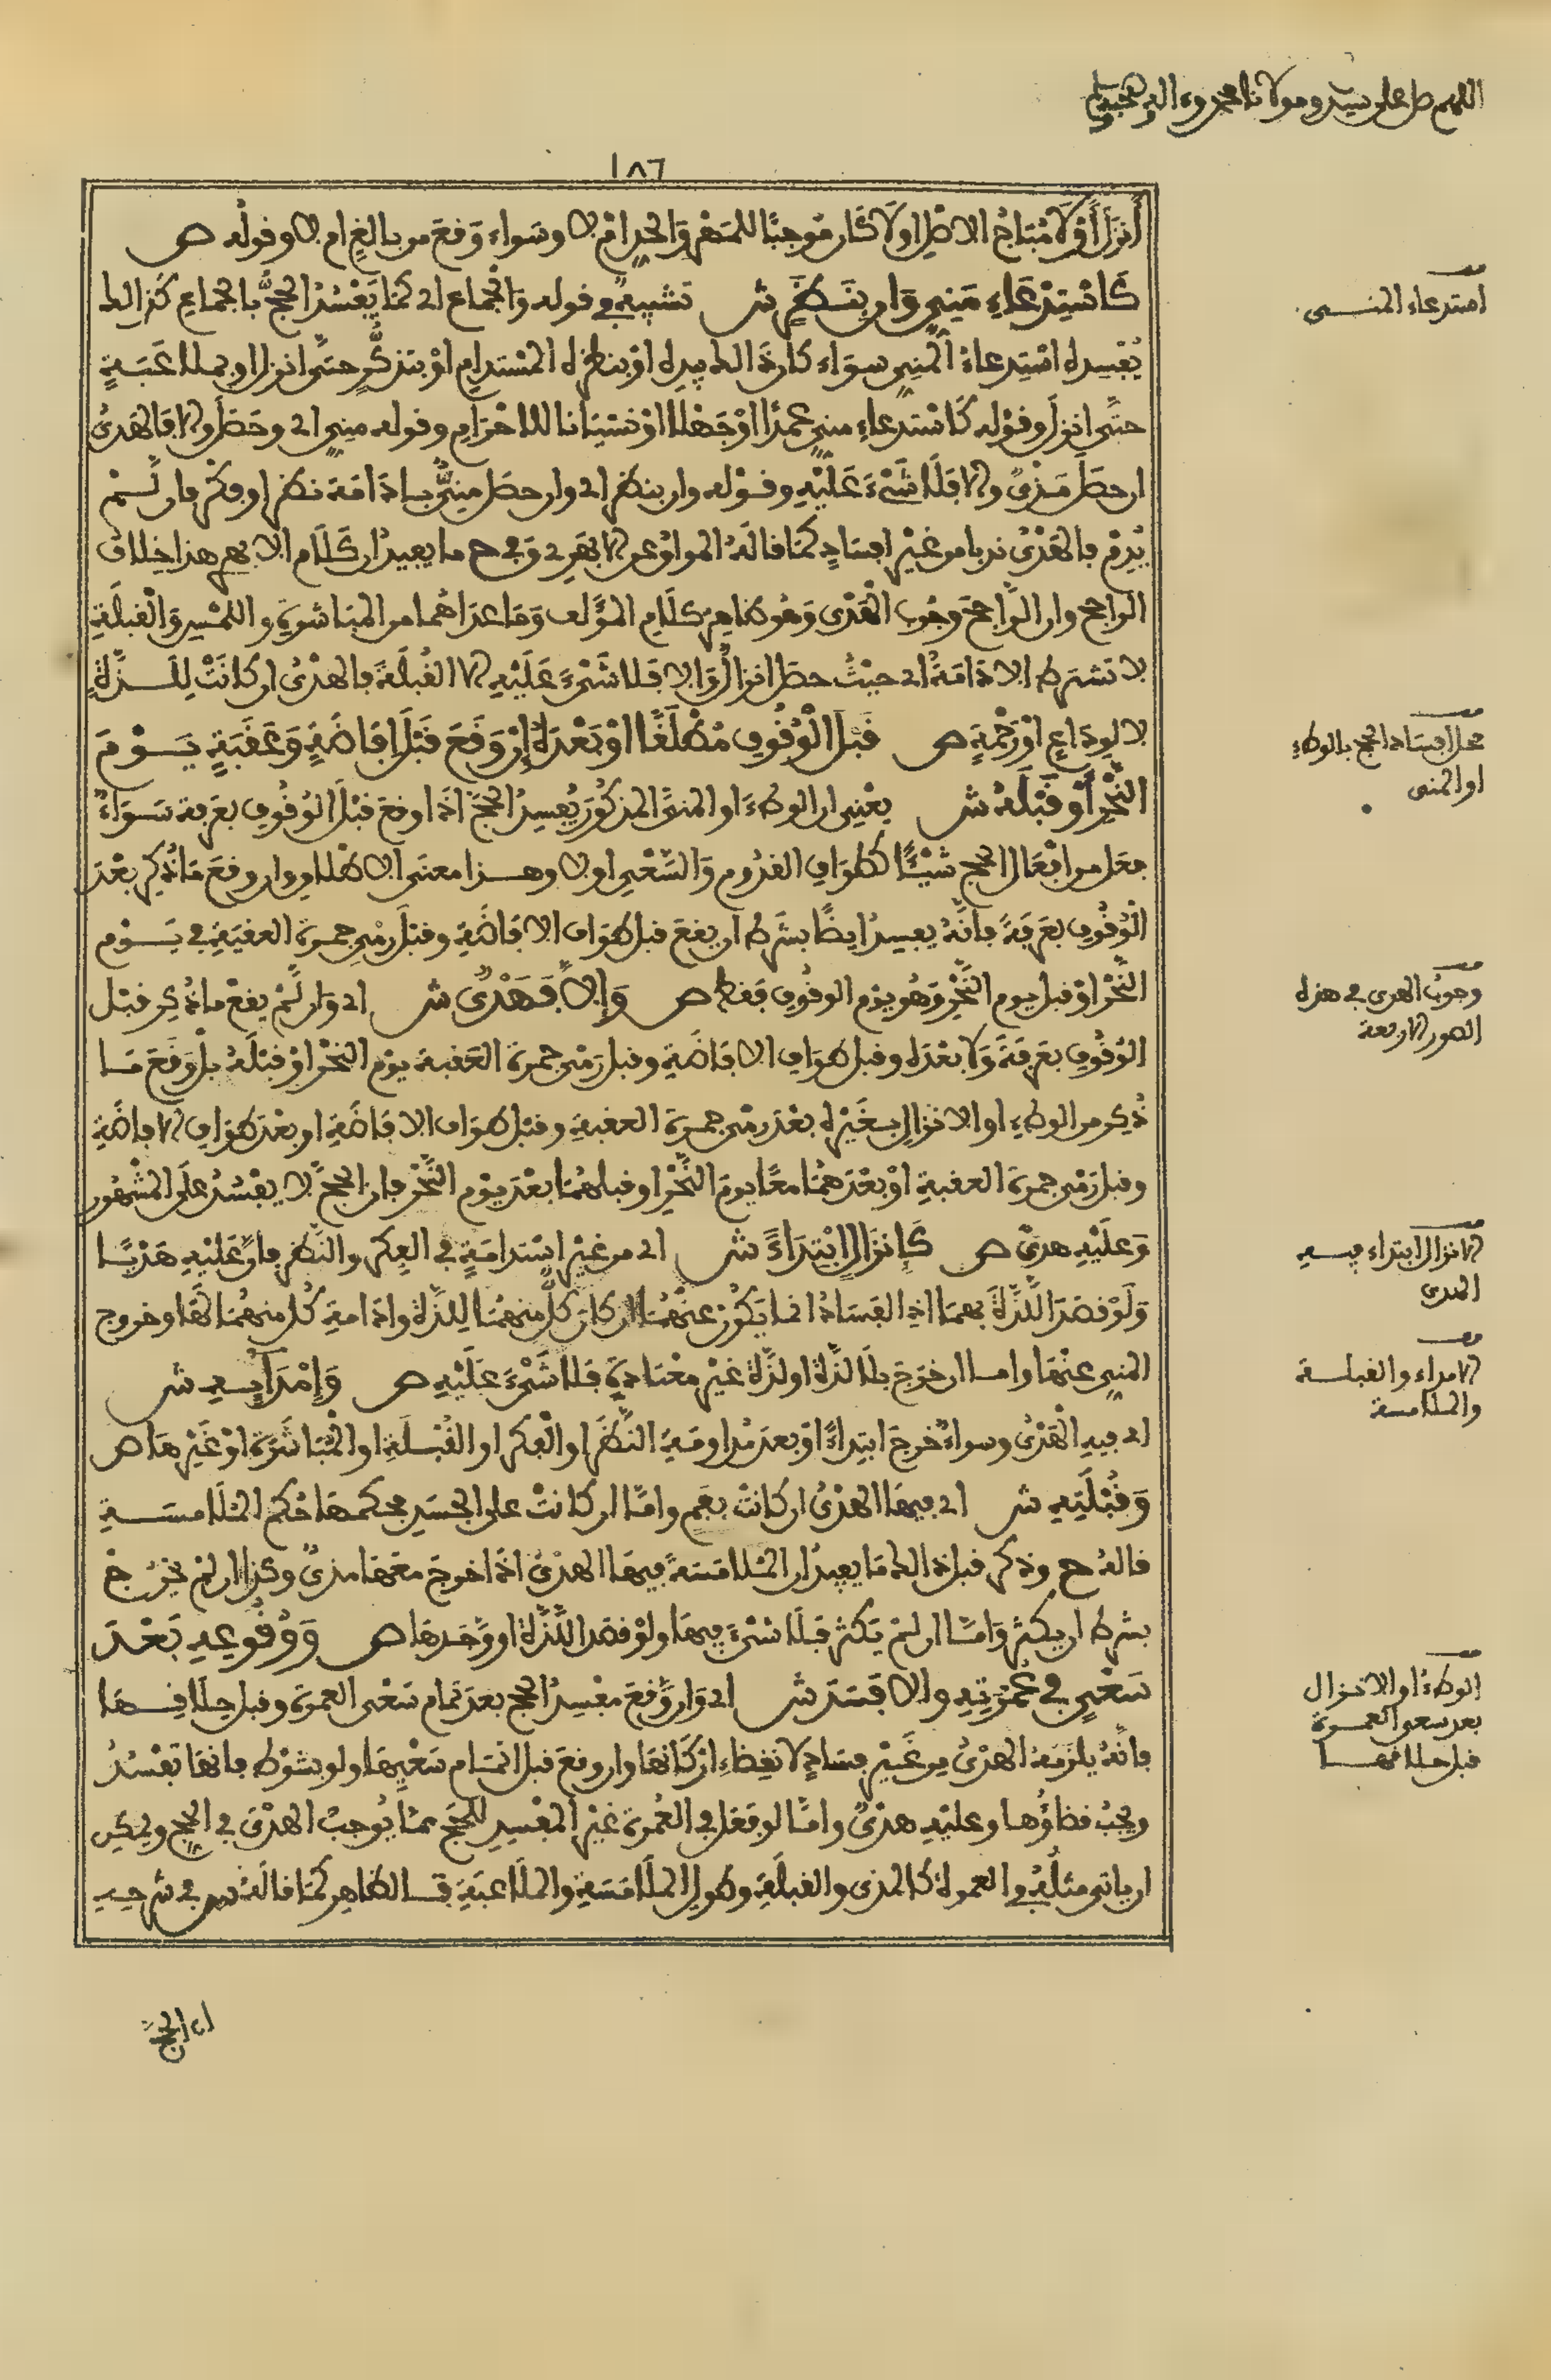 اللهم صل على سيدنا ومولانا محمد وءاله وصحبه وسلم
١٨٦
أنزل أو لا مباح الاصل او لا كان موجبا للمهر والحد ام لا وسواء وقع من بالغ ام لا وقوله ص
كاستدعاء مني وان بنظر ش تشبيه في قوله والجماع اي كما يفسد الحج بالجماع كذالك
يفسده استدعاء المني سواء كان ذالك بيده او بنظره المستديم او بتذكر حتى انزل او بملاعبة
حتى انزل وقوله كاستدعاء مني عمدا او جهلا او نسيانا للاحرام وقوله مني اي وحصل والا فالهدي
ان حصل مذي والا فلا شيء عليه وقوله وان بنظر اي وان حصل مني بادامة نظر او فكر فان لم
يدم فالهدي ندبا من غير افساد كما قاله المواق عن الابهري وفي ح ما يفيد ان كلام الابهري هذا خلاف
الراجح وان الراجح وجوب الهدي وهو ظاهر كلام المؤلف وما عداهما من المباشرة واللمس والقبلة
لا تشترط الادامة اي حيث حصل انزال والا فلا شيء عليه الا القبلة فالهدي ان كانت للذة
لا لوداع او رحمة ص قبل الوقوف مطلقا او بعده ان وقع قبل افاضة وعقبة يوم
النحر او قبله ش يعني ان الوطء او المني المذكور يفسد الحج اذا وقع قبل الوقوف بعرفة سواء
فعل من افعال الحج شيئا كطواف القدوم والسعي او لا وهذا معنى الاطلاق وان وقع ما ذكر بعد
الوقوف بعرفة فانه يفسد ايضا بشرط ان يقع قبل طواف الافاضة وقبل رمي جمرة العقبة في يوم
النحر او قبل يوم النحر وهو يوم الوقوف فقط ص وإلا فهدي ش اي وان لم يقع ما ذكر قبل
الوقوف بعرفة ولا بعده وقبل طواف الافاضة وقبل رمي جمرة العقبة يوم النحر او قبله بل وقع ما
ذكر من الوطء او الانزال بغيره بعد رمي جمرة العقبة وقبل طواف الافاضة او بعد طواف الافاضة
وقبل رمي جمرة العقبة او بعدهما معا يوم النحر او قبلهما بعد يوم النحر فان الحج لا يفسد على المشهور
وعليه هدي ص كإنزال ابتداء ش اي من غير استدامة في الفكر والنظر فان عليه هديا
ولو قصد اللذة بهما اذ الفساد انما يكون عنهما ان كان كل منهما للذة وادامة كل منهما لها وخروج
المني عنها واما ان خرج بلا لذة او لذة غير معتادة فلا شيء عليه ص وإمذايه ش
اي فيه الهدي وسواء خرج ابتداء او بعد مداومة النظر او الفكر او القبلة او المباشرة او غيرها ص
وقبلته ش اي فيها الهدي ان كانت بفم واما ان كانت على الجسد فحكمها حكم الملامسة
قاله ح وذكر قبل ذالك ما يفيد ان الملامسة فيها الهدي اذا خرج معها مذي وكذا ان لم يخرج
بشرط ان يكثر واما ان لم يكثر فلا شيء فيها ولو قصد اللذة او وجدها ص ووقوعه بعد
سعي في عمرته والا فسدت ش اي وان وقع مفسد الحج بعد تمام سعي العمرة وقبل حلاقها
فانه يلزمه الهدي من غير فساد لانقضاء اركانها وان وقع قبل اتمام سعيها ولو بشوط فانها تفسد
ويجب قضاؤها وعليه هدي واما لو فعل في العمرة غير المفسد للحج مما يوجب الهدي في الحج ويمكن
ان ياتي مثله في العمرة كالمذي والقبلة وطول الملامسة والملاعبة فالظاهر كما قاله س في شرحه
ان الحج
استدعاء المني
محل افساد الحج بالوطء
او المني
وجوب الهدي في هذه
الصور الاربعة
الانزال ابتداء فيه
الهدي
الامذاء والقبلة
والملامسة
الوطء او الانزال
بعد سعي العمرة
قبل حلاقها